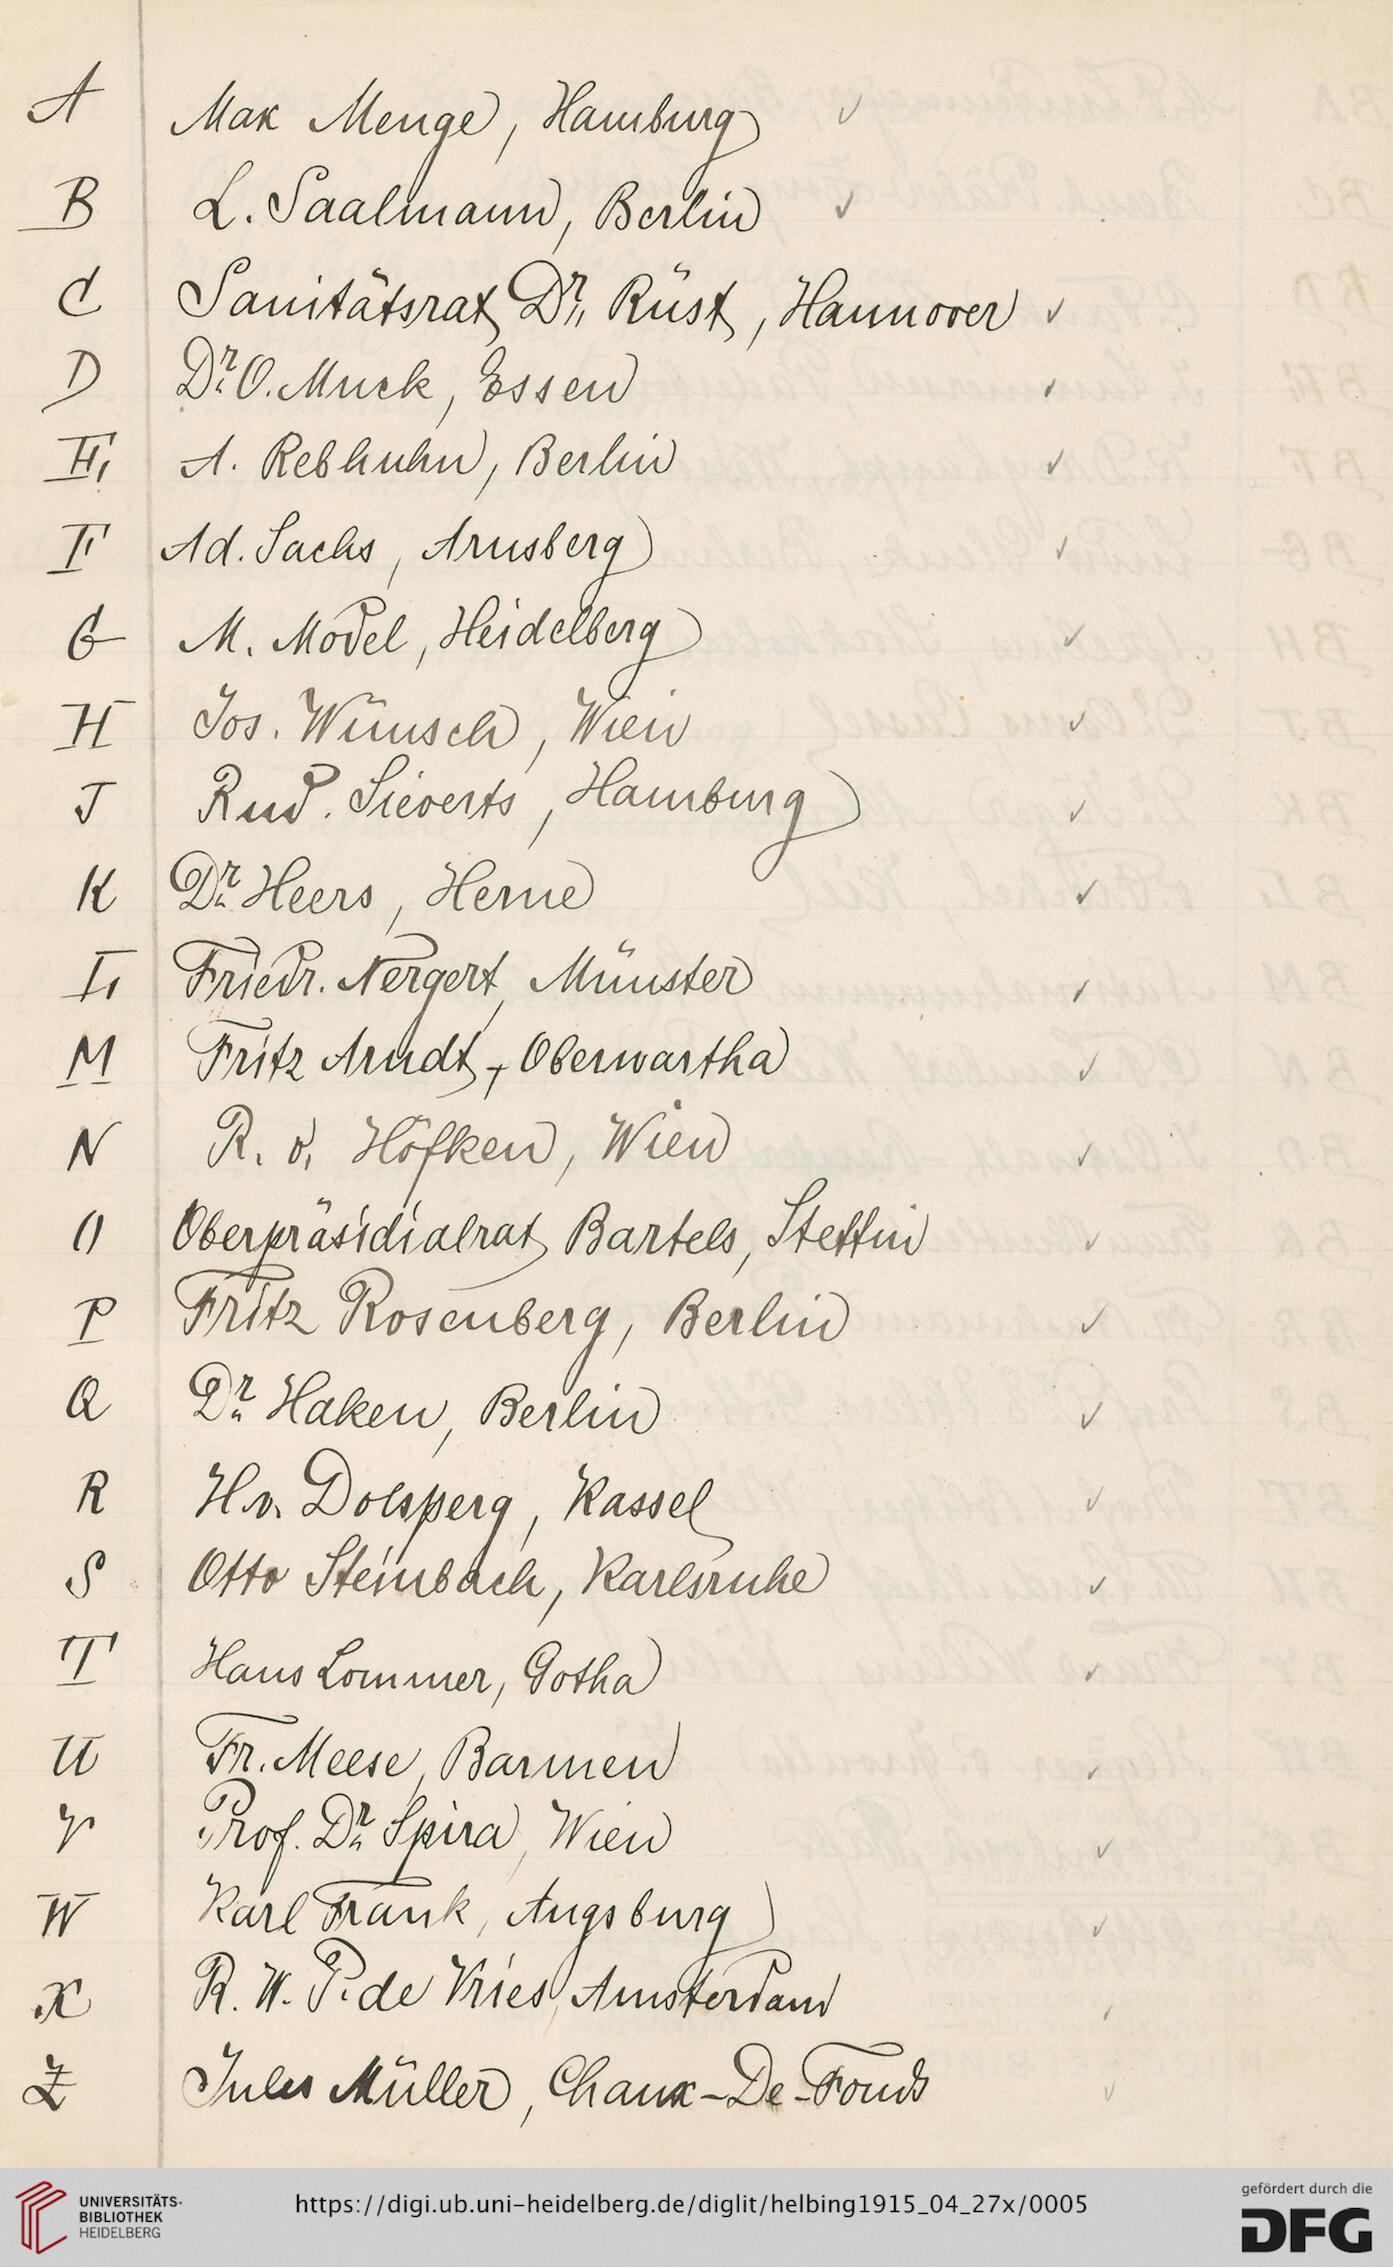 A Max Menge, Hamburg ✓
B L. Saalmann, Berlin ✓
C Sanitätsrat Dr. Rüst, Hannover ✓
D Dr. O. Muck, Essen ✓
E A. Rebhuhn, Berlin ✓
F Ad. Sachs, Arnsberg ✓
G M. Model, Heidelberg ✓
H Jos. Wünsch, Wien ✓
J Rud. Sieverts, Hamburg ✓
K Dr. Heers, Herne ✓
L Friedr. Nergert, Münster ✓
M Fritz Arndt, Oberwartha ✓
N R. v. Höfken, Wien ✓
O Oberpräsidialrat Bartels, Stettin ✓
P Fritz Rosenberg, Berlin ✓
Q Dr. Haken, Berlin ✓
R H. v. Dolsperg, Kassel ✓
S Otto Steinbach, Karlsruhe ✓
T Hans Lommer, Gotha ✓
U Fr. Meese, Barmen ✓
V Prof. Dr. Spira, Wien ✓
W Karl Frank, Augsburg ✓
X R. W. P. de Vries, Amsterdam ✓
Z Jules Müller, Chaux-De-Fonds ✓
UNIVERSITÄTS-
BIBLIOTHEK
HEIDELBERG
https://digi.ub.uni-heidelberg.de/diglit/helbing1915_04_27x/0005
gefördert durch die
DFG